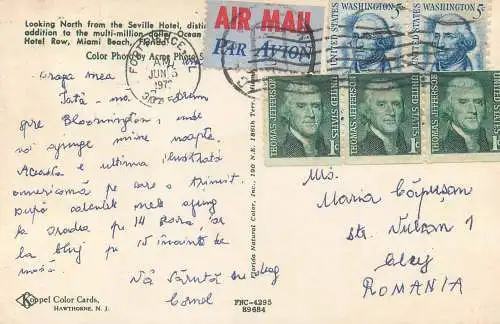 Looking North from the Seville Hotel,
addition to the multi-million dollar Ocean
Hotel Row, Miami Beach, Florida.
Color Photo by
AIR MAIL
PAR AVION
UNITED STATES
WASHINGTON 5c
UNITED STATES
WASHINGTON 5c
FORT PIERCE
JUN 5
THOMAS JEFFERSON
UNITED STATES
1c
THOMAS JEFFERSON
UNITED STATES
1c
THOMAS JEFFERSON
UNITED STATES
1c
Draga mea
Iată-mă drum
spre Bloomington, unde
voi ajunge mâine noapte.
Aceasta e ultima ilustrată
americană pe care o trimit.
După calculele mele ajung
la Oradea pe 14
la Cluj pe 15 înainte de
masă
Vă sărută cu drag
Cornel
Florida Natural Color, Inc., 790 N.E. 186th Terr.
Mrs.
Maria
str.
Cluj
ROMANIA
K
Koppel Color Cards,
HAWTHORNE, N. J.
FNC-4295
89684